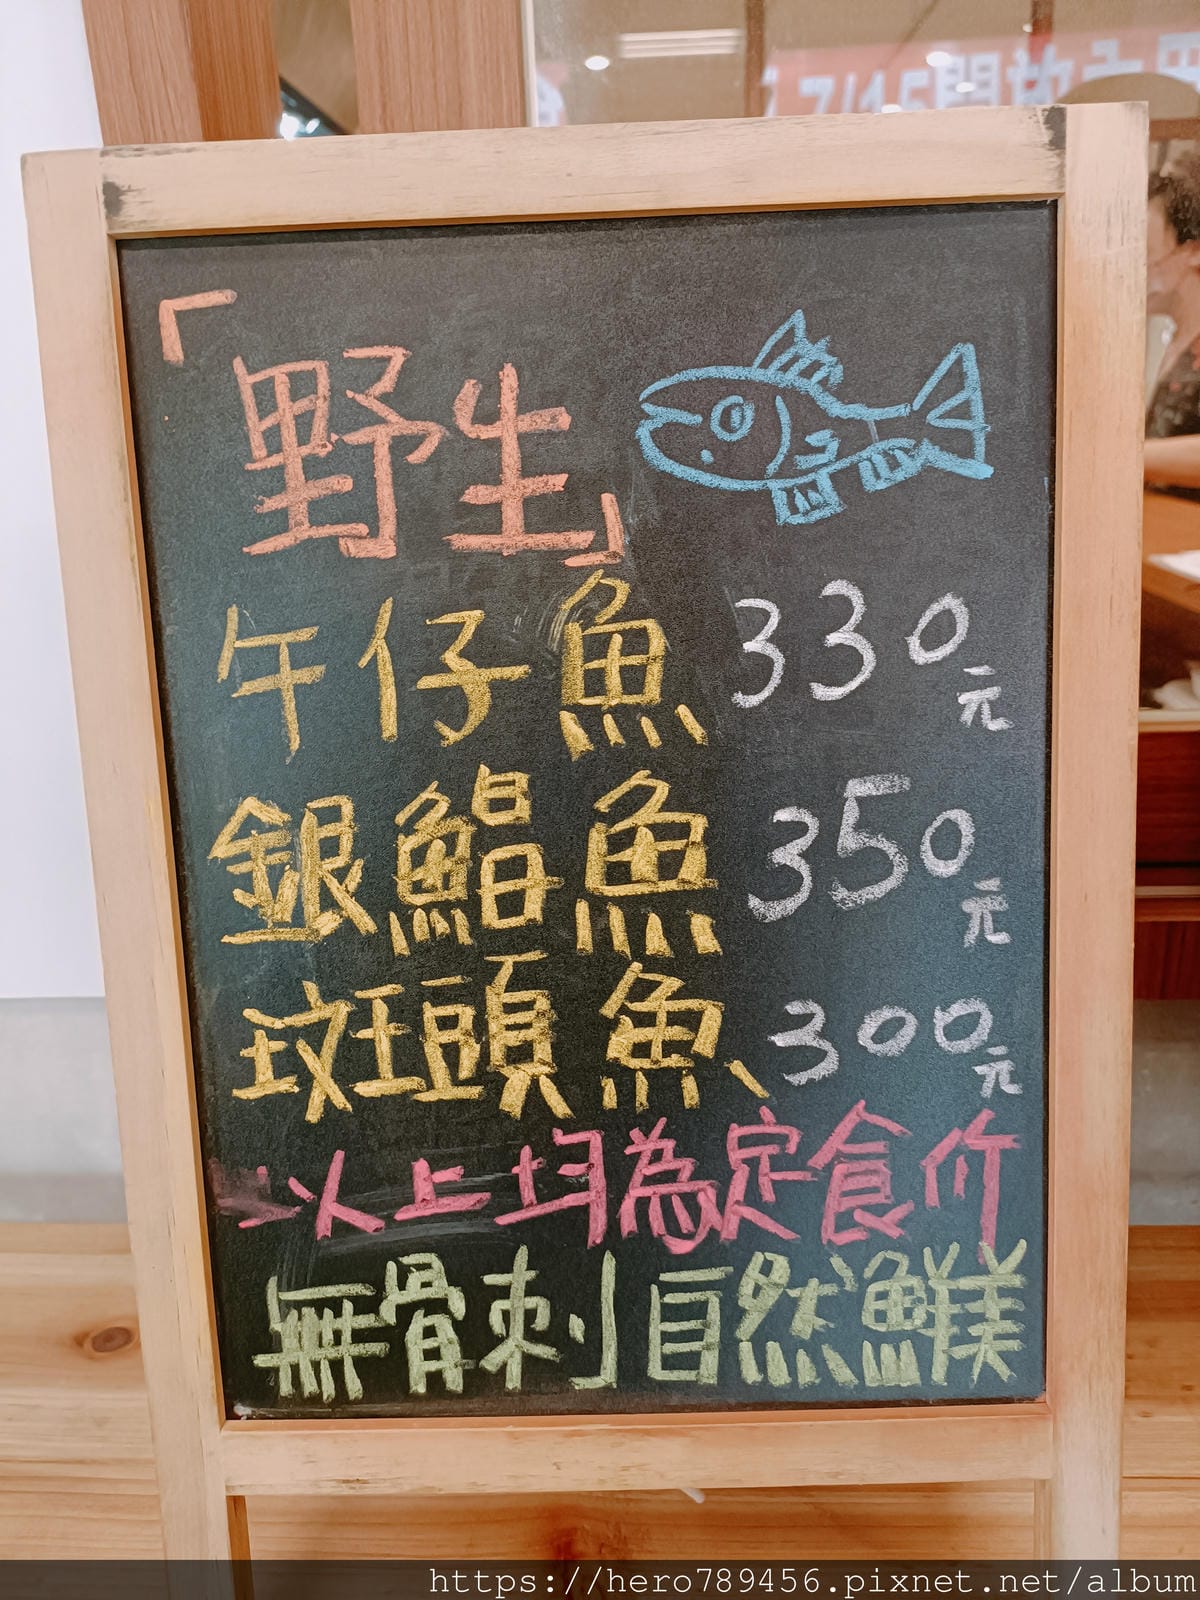 7/15開放
「野生」
午仔魚 330元
銀鯧魚 350元
斑頭魚、300元
以上均為定食价
無骨刺 自然鮮美
https://hero789456.pixnet.net/album